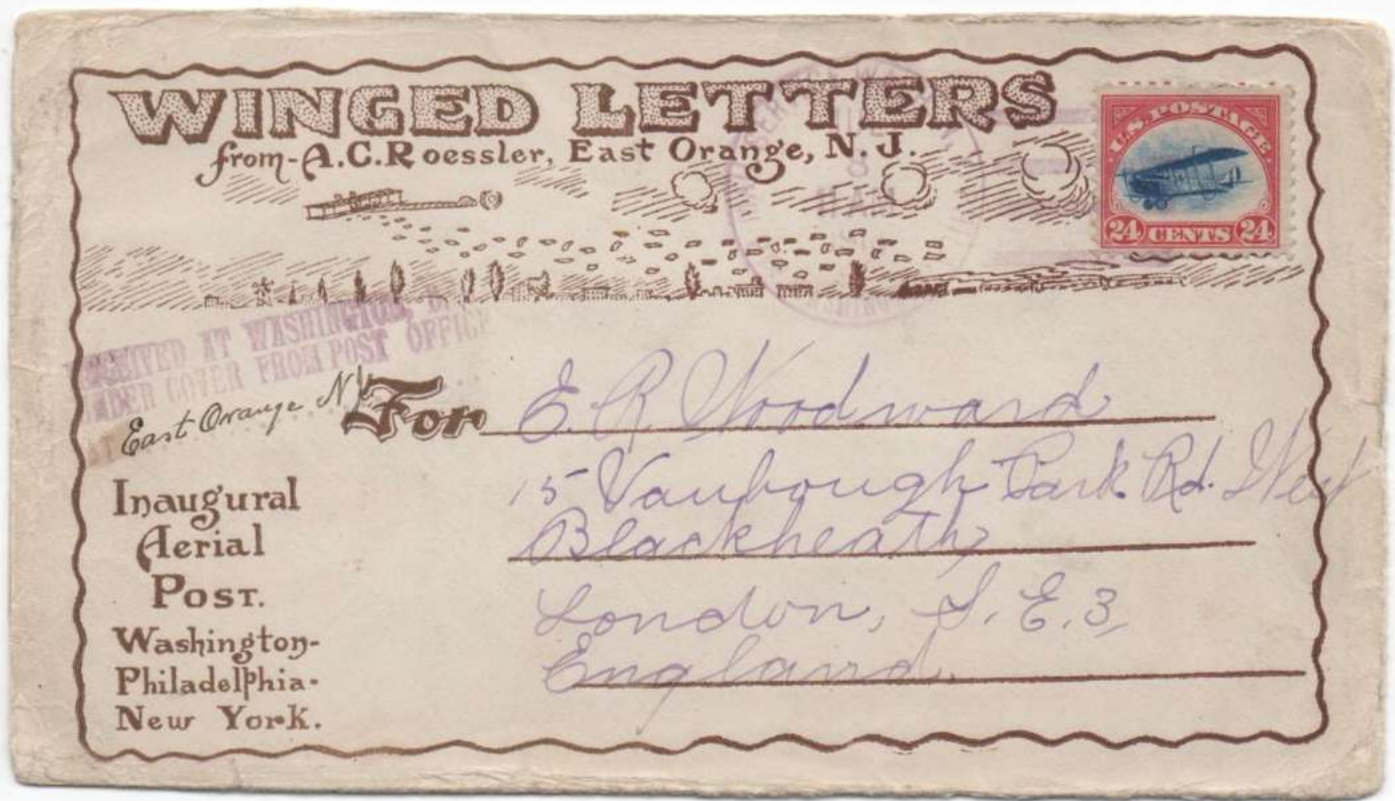 WINGED LETTERS
from-A.C.Roessler, East Orange, N.J.
U.S. POSTAGE
24 CENTS 24
RECEIVED AT WASHINGTON, D.
UNDER COVER FROM POST OFFICE
East Orange N.J.
For E. R. Woodward
15 Vanbrough Park Rd. West
Blackheath,
London, S.E.3,
England.
Inaugural
Aerial
Post.
Washington-
Philadelphia-
New York.